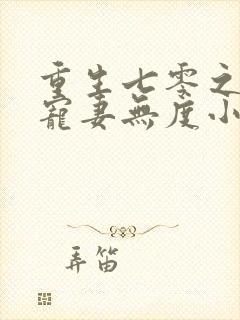 重生七零之
寵妻無度小
弄笛